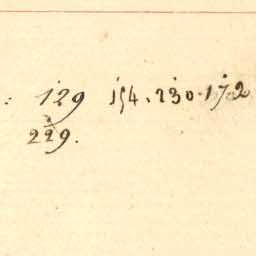 : 129 154. 230. 172
229.